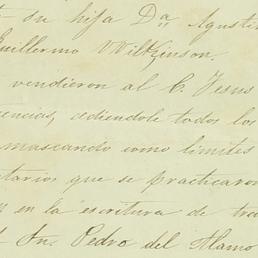 su hija Da. Agusti
Guillermo Wilkinson.
vendieron al C. Jesus
encias, cediendole todos los
mascando como limites
tarios que se practicaron
en la escritura de tra
Sn. Pedro del Alamo